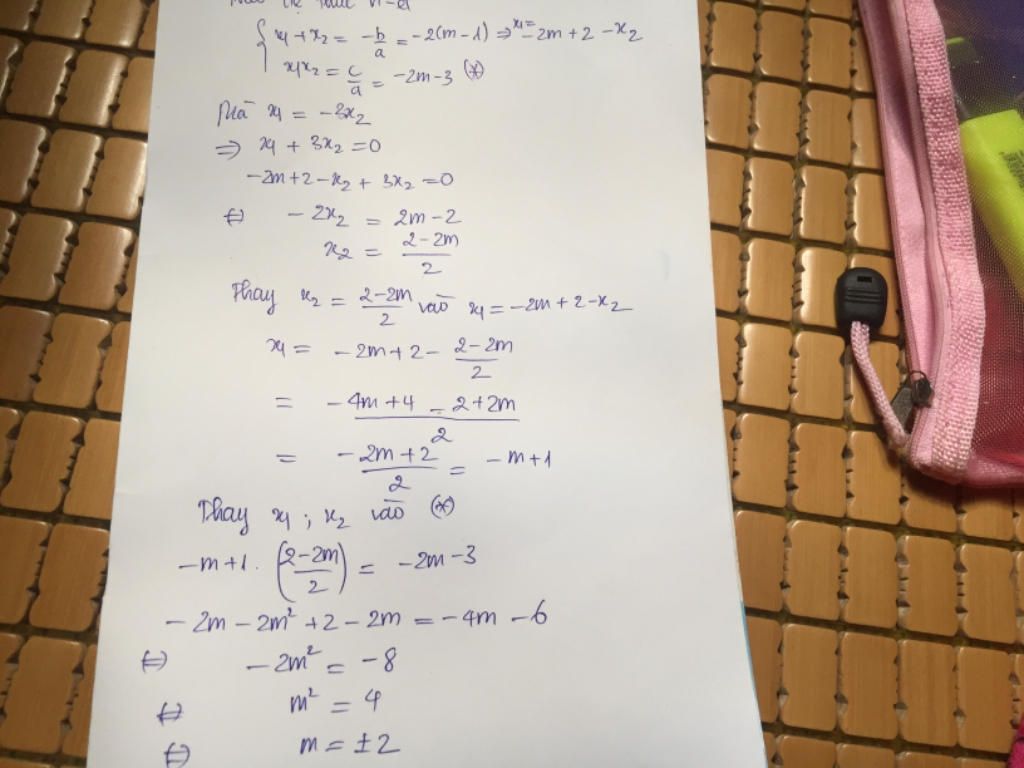 x₁ + x₂ = -b/a = -2(m-1) ⇒ x₁ = -2m+2-x₂
x₁x₂ = c/a = -2m-3 (*)
Mà x₁ = -3x₂
⇒ x₁ + 3x₂ = 0
-2m+2-x₂ + 3x₂ = 0
⇔ -2x₂ = 2m-2
x₂ = (2-2m)/2
Thay x₂ = (2-2m)/2 vào x₁ = -2m+2-x₂
x₁ = -2m+2 - (2-2m)/2
= (-4m+4-2+2m)/2
= (-2m+2)/2 = -m+1
Thay x₁ ; x₂ vào (*)
-m+1 . ((2-2m)/2) = -2m-3
-2m-2m²+2-2m = -4m-6
⇔ -2m² = -8
⇔ m² = 4
⇔ m = ±2